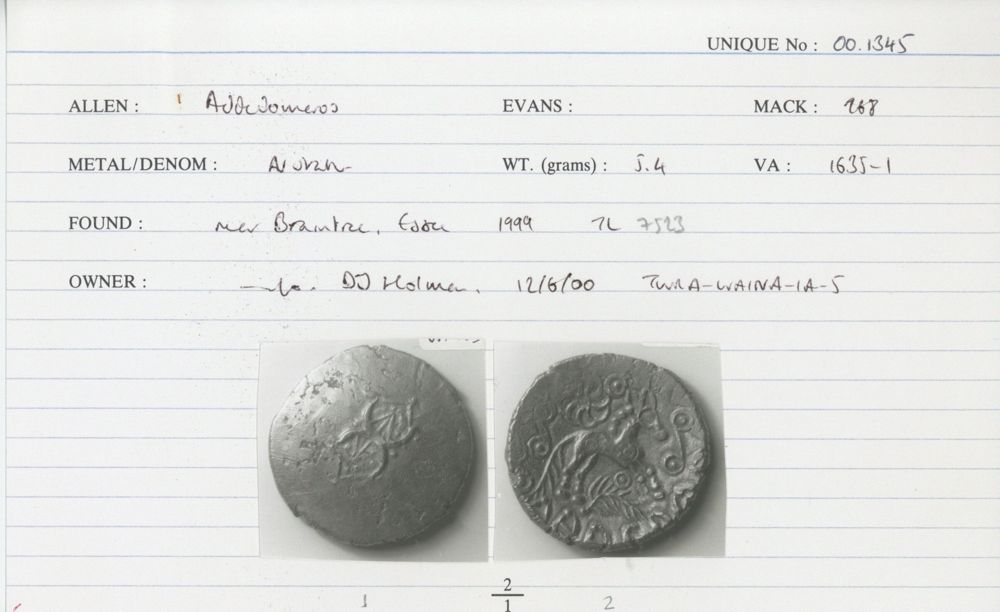 UNIQUE No : 00.1345
ALLEN : Addedomeros EVANS : MACK : 268
METAL/DENOM : AV stater WT. (grams) : 5.4 VA : 1635-1
FOUND : near Braintree, Essex 1999 TL 7523
OWNER : DJ Holman. 12/6/00
2
1
1 2